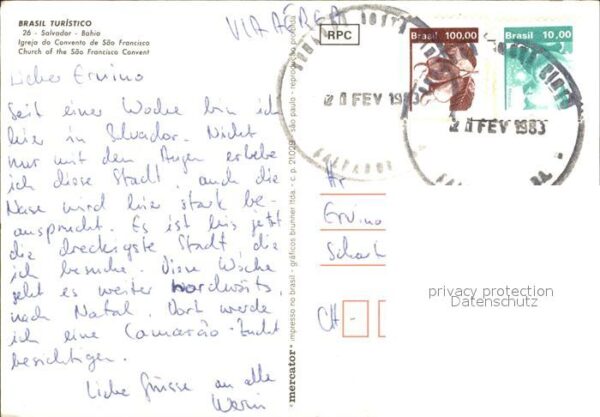 BRASIL TURÍSTICO
26 - Salvador - Bahia
Igreja do Convento de São Francisco
Church of the São Francisco Convent
Lieber Ervino
Seit einer Woche bin ich
hier in Salvador. Nicht
nur mit den Augen erlebe
ich diese Stadt, auch die
Nase wird hier stark be-
ansprucht. Es ist bis jetzt
die dreckigste Stadt die
ich besuche. Diese Woche
geht es weiter nordwärts,
nach Natal. Dort werde
ich eine Camarão-Zucht
besichtigen.
Liebe Grüsse an alle
VIA AÉREA
RPC
Brasil 100,00
Brasil 10,00
FEV 1983
FEV 1983
mercator impresso no brasil - gráficos brunner ltda. - c.p. - são paulo - reprodução proibida
Hr
Ervino
CH -
privacy protection
Datenschutz